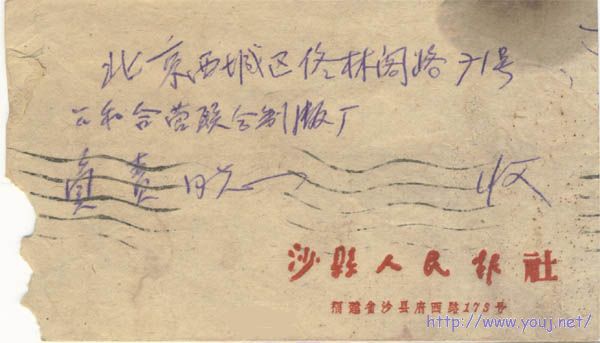 北京西城区佟林阁路71号
公私合营联合制版厂
收
沙縣人民報社
福建省沙县府西路173号
http://www.youj.net/